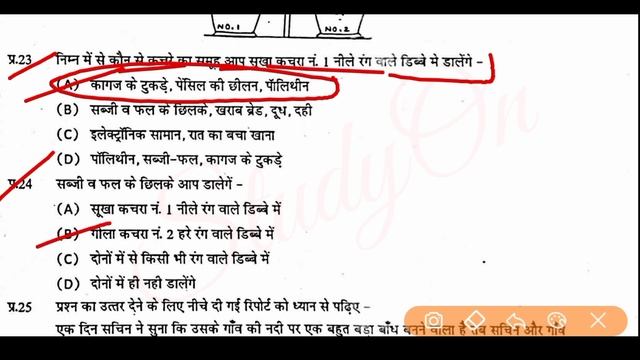 NO.1 NO.2
प्र.23 निम्न में से कौन से कचरे का समूह आप सूखा कचरा नं. 1 नीले रंग वाले डिब्बे मे डालेंगे -
(A) कागज के टुकड़े, पेंसिल की छीलन, पॉलिथीन
(B) सब्जी व फल के छिलके, खराब ब्रेड, दूध, दही
(C) इलेक्ट्रॉनिक सामान, रात का बचा खाना
(D) पॉलिथीन, सब्जी-फल, कागज के टुकड़े
प्र.24 सब्जी व फल के छिलके आप डालेगें -
(A) सूखा कचरा नं. 1 नीले रंग वाले डिब्बे में
(B) गीला कचरा नं. 2 हरे रंग वाले डिब्बे में
(C) दोनों में से किसी भी रंग वाले डिब्बे में
(D) दोनों में ही नही डालेंगे
प्र.25 प्रश्न का उत्तर देने के लिए नीचे दी गई रिपोर्ट को ध्यान से पढ़िए -
एक दिन सचिन ने सुना कि उसके गाँव की नदी पर एक बहुत बड़ा बाँध बनने वाला है तब सचिन और गाँव
StudyOn